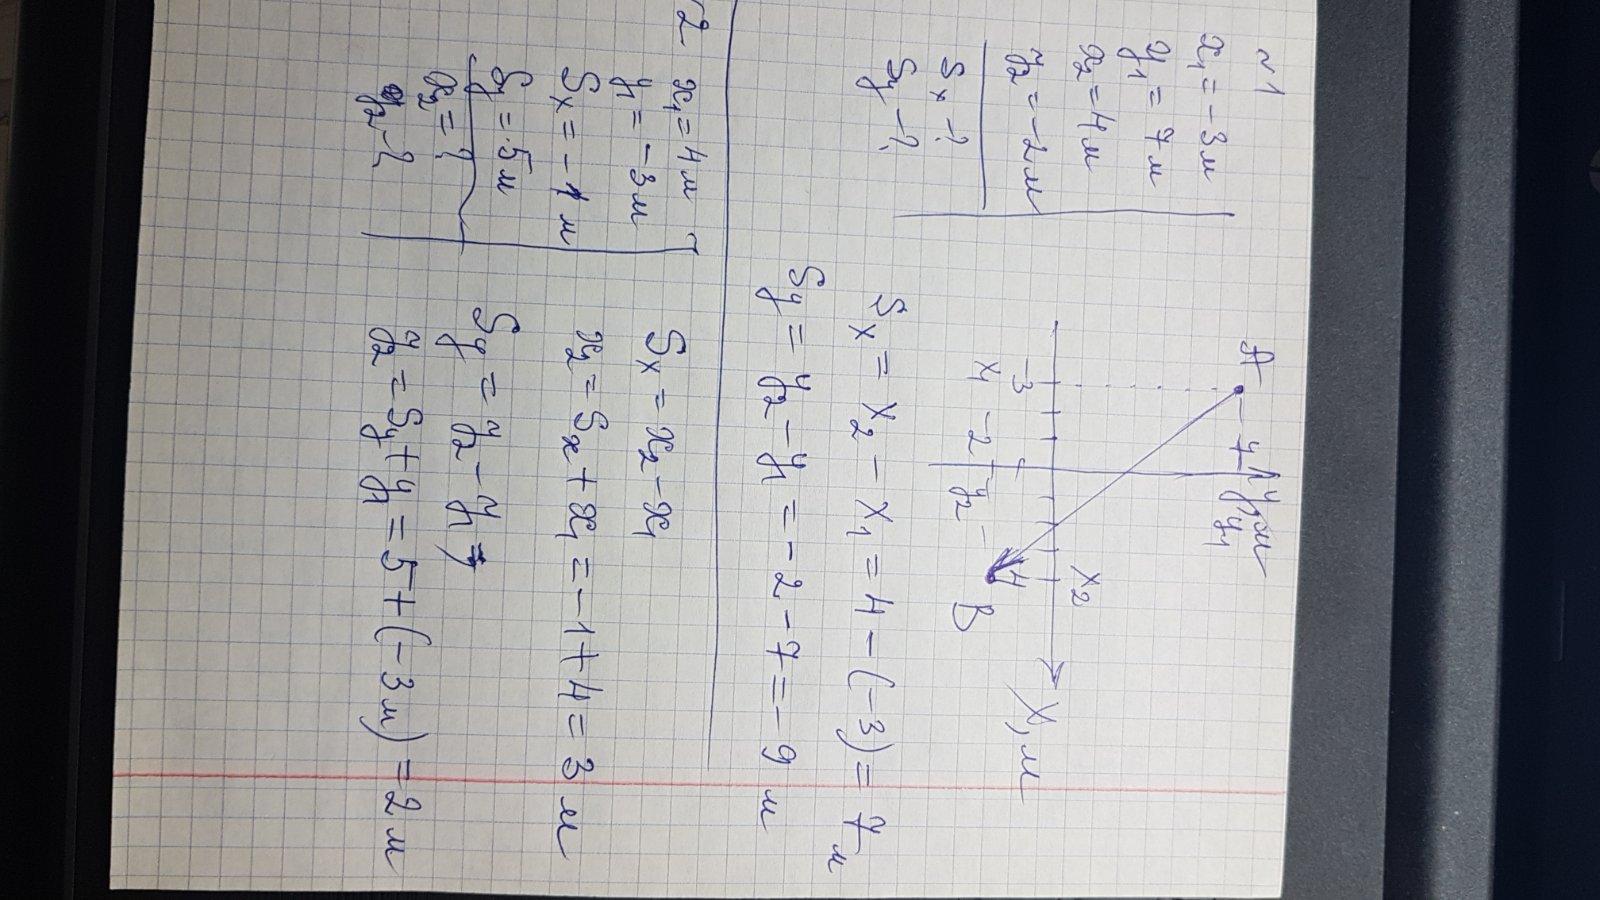 ~1
x₁ = -3 м
y₁ = 7 м
x₂ = 4 м
y₂ = -2 м
Sx - ?
Sy - ?
A
7
y, м
y₁
x₂
-3
x₁
4
X, м
-2
y₂
B
Sx = x₂ - x₁ = 4 - (-3) = 7 м
Sy = y₂ - y₁ = -2 - 7 = -9 м
2
x₁ = 4 м
y₁ = -3 м
Sx = -1 м
Sy = 5 м
x₂ = ?
y₂ - ?
Sx = x₂ - x₁
x₂ = Sx + x₁ = -1 + 4 = 3 м
Sy = y₂ - y₁
y₂ = Sy + y₁ = 5 + (-3 м) = 2 м